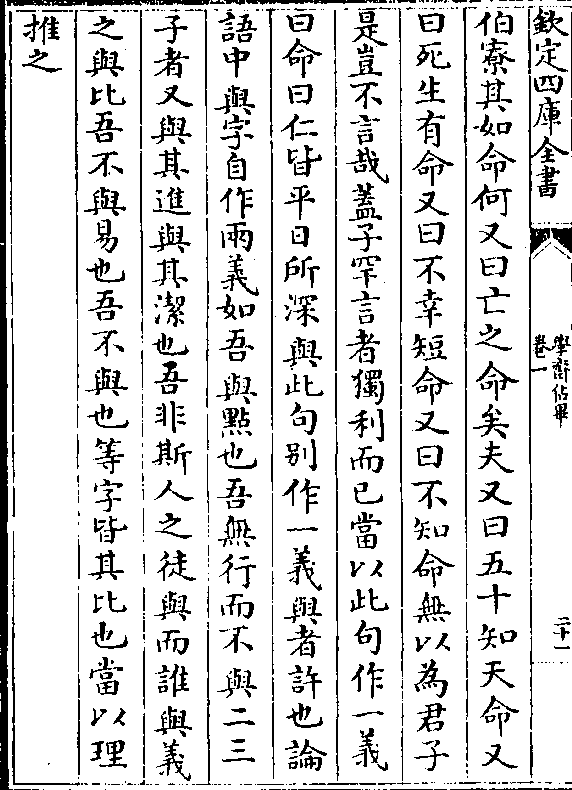 欽定四庫全書
學齋佔畢
卷一
二十一
伯寮其如命何又曰亡之命矣夫又曰五十知天命又
曰死生有命又曰不幸短命又曰不知命無以為君子
是豈不言哉蓋子罕言者獨利而已當以此句作一義
曰命曰仁皆平日所深與此句別作一義與者許也論
語中與字自作兩義如吾與點也吾無行而不與二三
子者又與其進與其潔也吾非斯人之徒與而誰與義
之與比吾不與易也吾不與也等字皆其比也當以理
推之